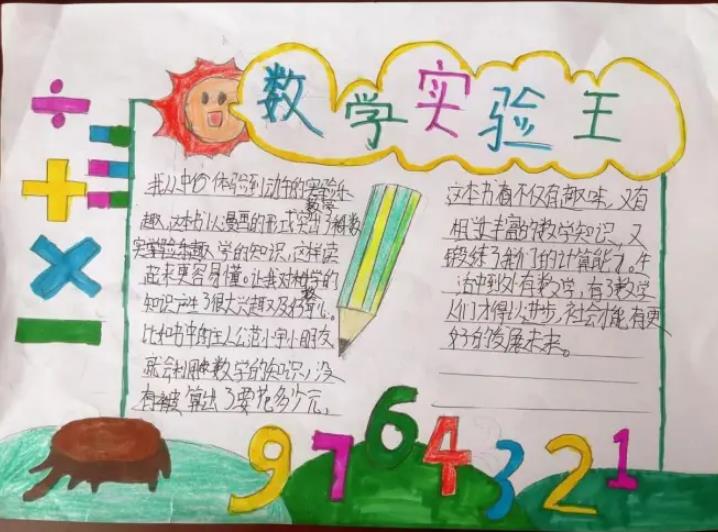 数学实验王
÷
+
×
−
我从中 体验到动的实验乐
数学
趣,这本书以漫画的形式突出了数
学的知识,这样读
起来更容易懂。让我对数学的
知识产生了很大兴趣又及好奇心。
比如书中的主人公范小宇小朋友
就会利用数学的知识,没
有被 算出了要花多少元。
这本书 不仅有趣味,又有
相 丰富的数学知识,又
锻练了我们的计算能力。生
活中到处有数学,有了数学
人们才得以进步,社会才能有更
好的发展未来。
9 7 6 4 3 2 1